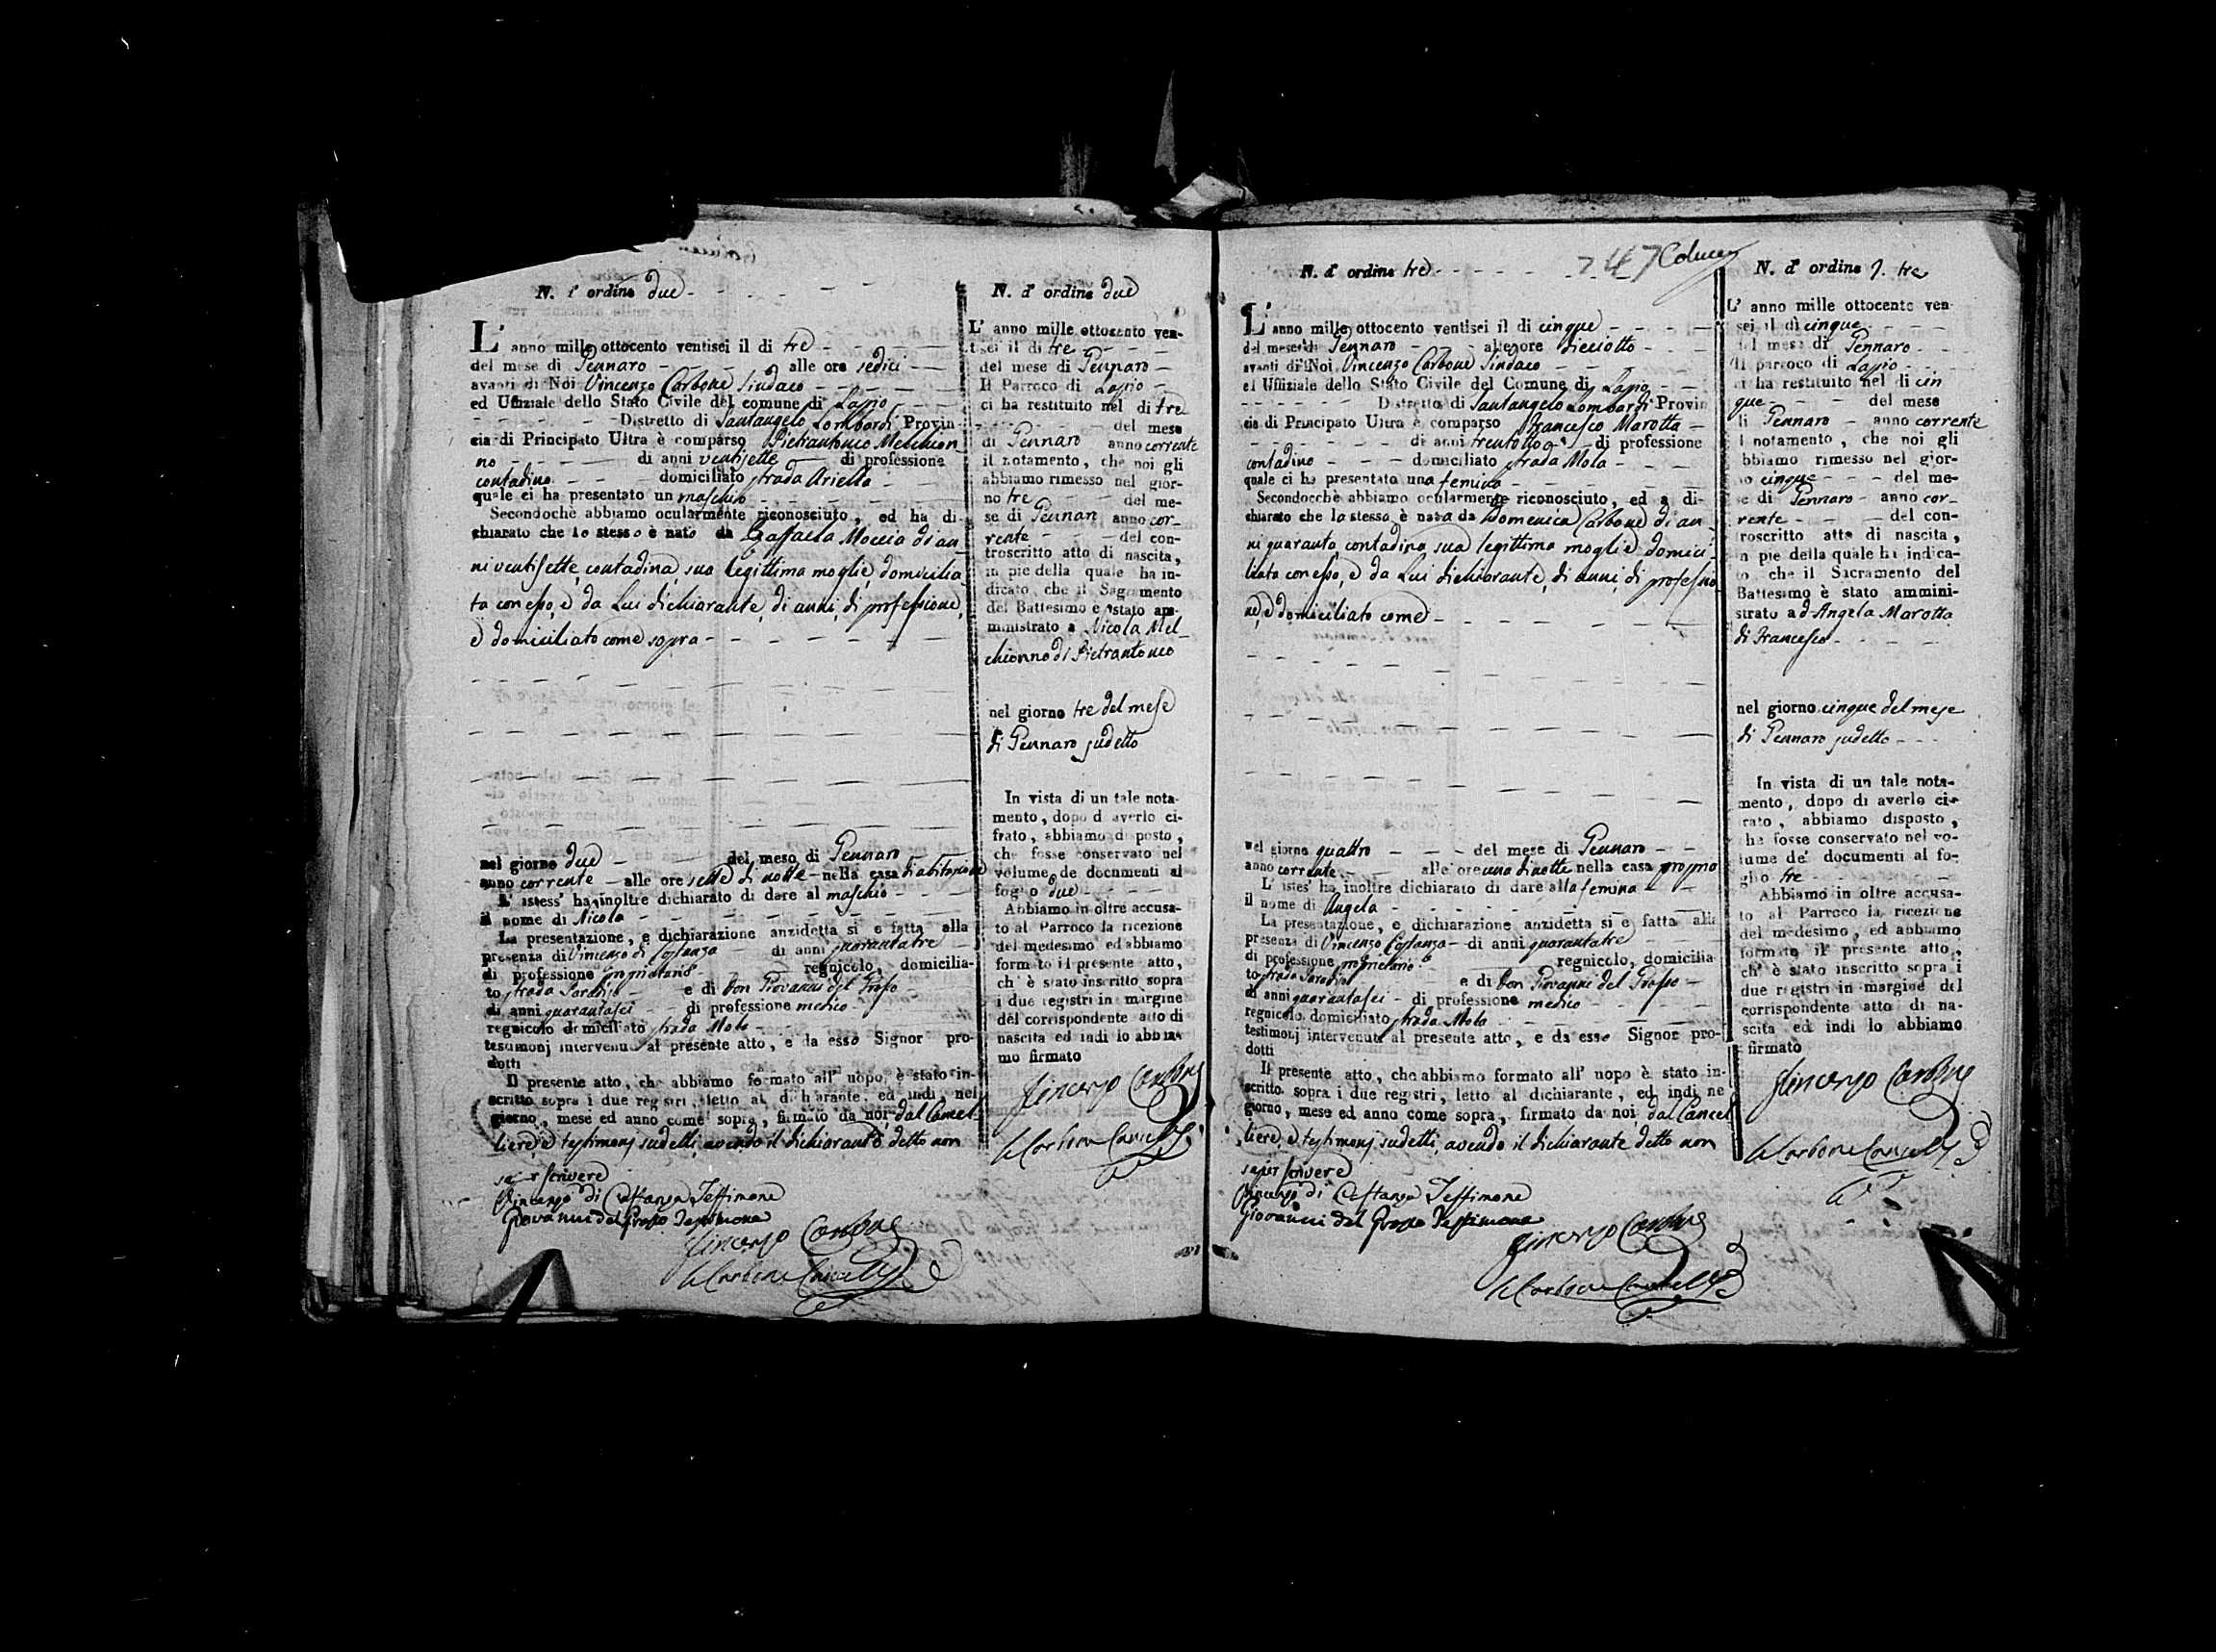 N. d' ordine due
L' anno mille ottocento ventisei il di tre
del mese di Gennaro alle ore sedici
avanti di Noi Vincenzo Carbone Sindaco
ed Uffiziale dello Stato Civile del comune di Lapio
Distretto di Santangelo Lombardi Provin-
cia di Principato Ultra è comparso Pietrantonio Melchion
no di anni ventisette di professione
contadino domiciliato strada Ariella
quale ci ha presentato un maschio
Secondochè abbiamo ocularmente riconosciuto, ed ha di-
chiarato che lo stesso è nato da Raffaela Moccia di an
ni ventisette, contadina, sua legittima moglie domicilia
ta con esso, e da Lui dichiarante, di anni, di professione,
e domiciliato come sopra
nel giorno due del mese di Gennaro
anno corrente alle ore sette di notte nella casa d'abitazione
L' istess' ha inoltre dichiarato di dare al maschio
il nome di Nicola
La presentazione, e dichiarazione anzidetta si è fatta alla
presenza di Vincenzo di Costanza di anni quarantatre
di professione proprietario regnicolo, domicilia-
to strada e di Don Giovanni del Grosso
di anni quarantasei di professione medico
regnicolo domiciliato strada Mola
testimonj intervenuti al presente atto, e da esso Signor pro-
dotti
Il presente atto, che abbiamo formato all' uopo, è stato in-
scritto sopra i due registri, letto al dichiarante, ed indi, nel
giorno, mese ed anno come sopra, firmato da noi, dal Cancel
liere, e testimonj sudetti, avendo il dichiarante detto non
saper scrivere
Vincenzo di Costanza Testimone
Giovanni del Grosso Testimone
Vincenzo Carbone
Carbone Cancelliere
N. d' ordine due
L' anno mille ottocento ven-
tisei il di tre
del mese di Gennaro
Il Parroco di Lapio
ci ha restituito nel di tre
del mese
di Gennaro anno corrente
il notamento, che noi gli
abbiamo rimesso nel gior-
no tre del me-
se di Gennaro anno cor-
rente del con-
troscritto atto di nascita,
in piè della quale ha in-
dicato che il Sagramento
del Battesimo è stato am-
ministrato a Nicola Mel-
chionno di Pietrantonio
nel giorno tre del mese
di Gennaro sudetto
In vista di un tale nota-
mento, dopo d averlo ci-
frato, abbiamo disposto,
che fosse conservato nel
volume de documenti al
foglio due
Abbiamo in oltre accusa-
to al Parroco la ricezione
del medesimo ed abbiamo
formato il presente atto,
ch' è stato inscritto sopra
i due registri in margine
del corrispondente atto di
nascita ed indi lo abbia-
mo firmato
Vincenzo Carbone
Carbone Cancelliere
N. d' ordine tre
247 Colucci
L' anno mille ottocento ventisei il di cinque
del mese di Gennaro alle ore dieciotto
avanti di Noi Vincenzo Carbone Sindaco
ed Uffiziale dello Stato Civile del Comune di Lapio
Distretto di Santangelo Lombardi Provin
cia di Principato Ultra è comparso Francesco Marotta
di anni trentotto di professione
contadino domiciliato strada Mola
quale ci ha presentato una femina
Secondocchè abbiamo ocularmente riconosciuto, ed a di-
chiarato che la stessa è nata da Domenica Carbone di an
ni quaranta, contadina sua legittima moglie domici
liata con esso, e da Lui dichiarante, di anni, di professio
ne, e domiciliato come
nel giorno quattro del mese di Gennaro
anno corrente alle ore una di notte nella casa propria
L' istes' ha inoltre dichiarato di dare alla femina
il nome di Angela
La presentazione, e dichiarazione anzidetta si è fatta alla
presenza di Vincenzo Costanza di anni quarantatre
di professione proprietario regnicolo, domicilia
to strada e di Don Giovanni del Grosso
di anni quarantasei di professione medico
regnicolo domiciliato strada Mola
testimonj intervenuti al presente atto, e da esso Signor pro-
dotti
Il presente atto, che abbiamo formato all' uopo è stato in-
scritto sopra i due registri, letto al dichiarante, ed indi ne
giorno, mese ed anno come sopra, firmato da noi dal Cancel
liere, e testimonj sudetti, avendo il dichiarante detto non
saper scrivere
Vincenzo di Costanza Testimone
Giovanni del Grosso Testimone
Vincenzo Carbone
Carbone Cancelliere
N. d' ordine tre
L' anno mille ottocento ven-
sei il di cinque
del mese di Gennaro
Il parroco di Lapio
ci ha restituito nel di cin
que del mese
di Gennaro anno corrente
il notamento, che noi gli
abbiamo rimesso nel gior-
no cinque del me-
se di Gennaro anno cor-
rente del con-
troscritto atto di nascita,
in piè della quale ha indica-
to che il Sacramento del
Battesimo è stato ammini-
strato ad Angela Marotta
di Francesco
nel giorno cinque del mese
di Gennaro sudetto
In vista di un tale nota-
mento, dopo di averlo ci-
rato, abbiamo disposto,
che fosse conservato nel vo-
lume de' documenti al fo-
glio tre
Abbiamo in oltre accusa-
to al Parroco la ricezione
del medesimo, ed abbiamo
formato il presente atto,
ch' è stato inscritto sopra i
due registri in margine del
corrispondente atto di na-
scita ed indi lo abbiamo
firmato
Vincenzo Carbone
Carbone Cancelliere